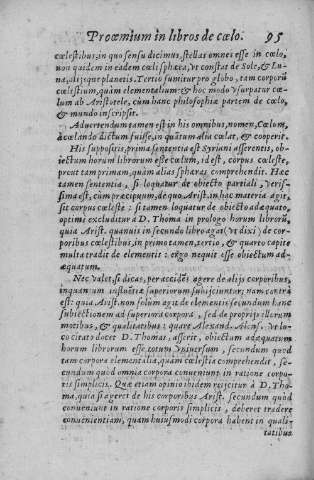 Proœmium in libros de cœlo. 95
cœlestibus, in quo sensu dicimus, stellas omnes esse in cœlo,
non quidem in eadem cœli sphæra, vt constat de Sole, & Lu-
na, alijsque planetis. Tertio sumitur pro globo, tam corporū
cœlestium, quàm elementalium: & hoc modo vsurpatur cœ-
lum ab Aristotele, cùm hanc philosophiæ partem de cœlo,
& mundo inscripsit.
Aduertendum tamen est in his omnibus, nomen, Cœlum,
à cœlando dictum fuisse, in quātum alia cœlat, & cooperit.
His suppositis, prima sententia est Syriani asserentis, ob-
iectum horum librorum esse cœlum, id est, corpus cœleste,
prout tam primum, quàm alias spharas comprehendit. Hæc
tamen sententia, si loquatur de obiecto partiali, veris-
sima est, cùm præcipuum, de quo Arist. in hac materia agit,
sit corpus cœleste: si tamen loquatur de obiecto adæquato,
optimè excluditur à D. Thoma in prologo horum librorū,
quia Arist. quamuis in secundo libro agat (vt dixi) de cor-
poribus cœlestibus, in primo tamen, tertio, & quarto capite
multa tradit de elementis: ergo nequit esse obiectum ad-
æquatum.
Nec valet, si dicas, per accidēs agere de alijs corporibus,
inquantum influētiæ superiorum subijciuntur; nam contrà
est: quia Arist. non solùm agit de elementis secundum hanc
subiectionem ad superiora corpora, sed de proprijs illorum
motibus, & qualitatibus: quare Alexand. vt lo-
co citato docet D. Thomas, asserit, obiectum adæquatum
horum librorum esse totum vniuersum, secundum quod
tam corpora elementalia, quàm cœlestia comprehendit, se-
cundùm quod omnia corpora conueniunt in ratione corpo-
ris simplicis. Quæ etiam opinio ibidem reijcitur à D. Tho-
ma, quia si ageret de his corporibus Arist. secundùm quòd
conueniunt in ratione corporis simplicis, deberet tradere
conuenientiam, quam huiusmodi corpora habent in quali-
tatibus